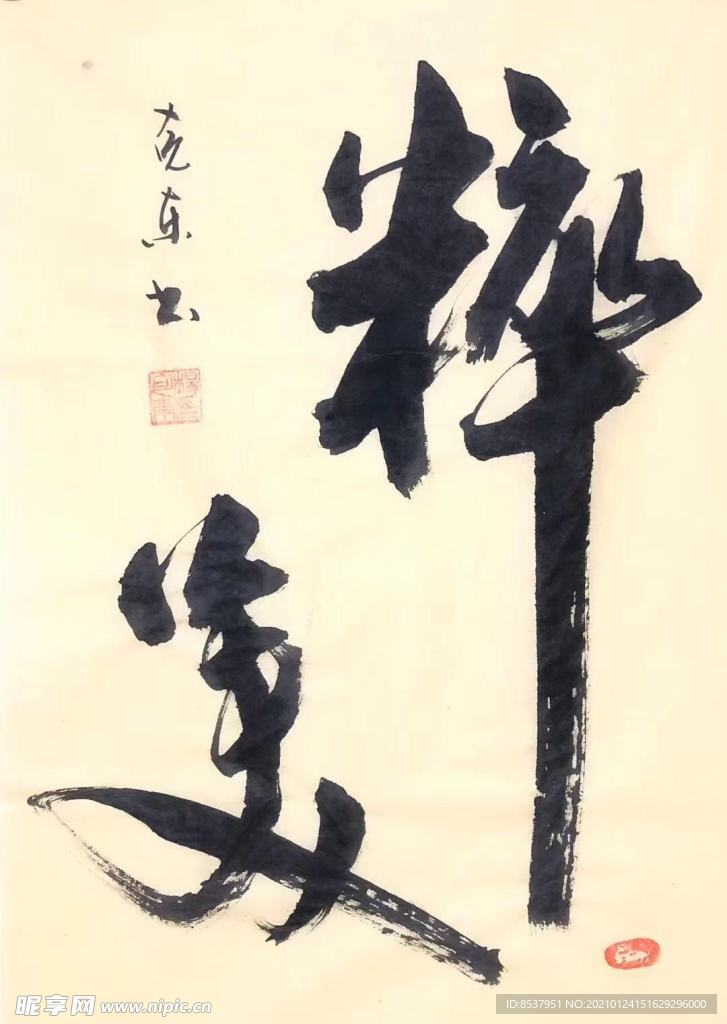 粹
美
克东书
昵享网 www.nipic.cn
ID:8537951 NO:20210124151629296000